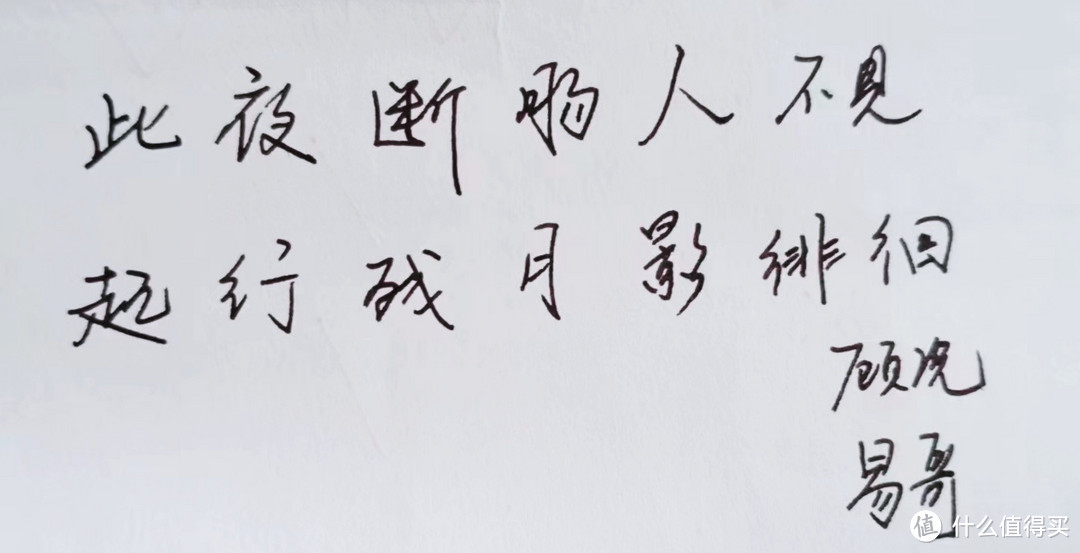 此夜断肠人不见
起行残月影徘徊
顾况
易哥
值 什么值得买